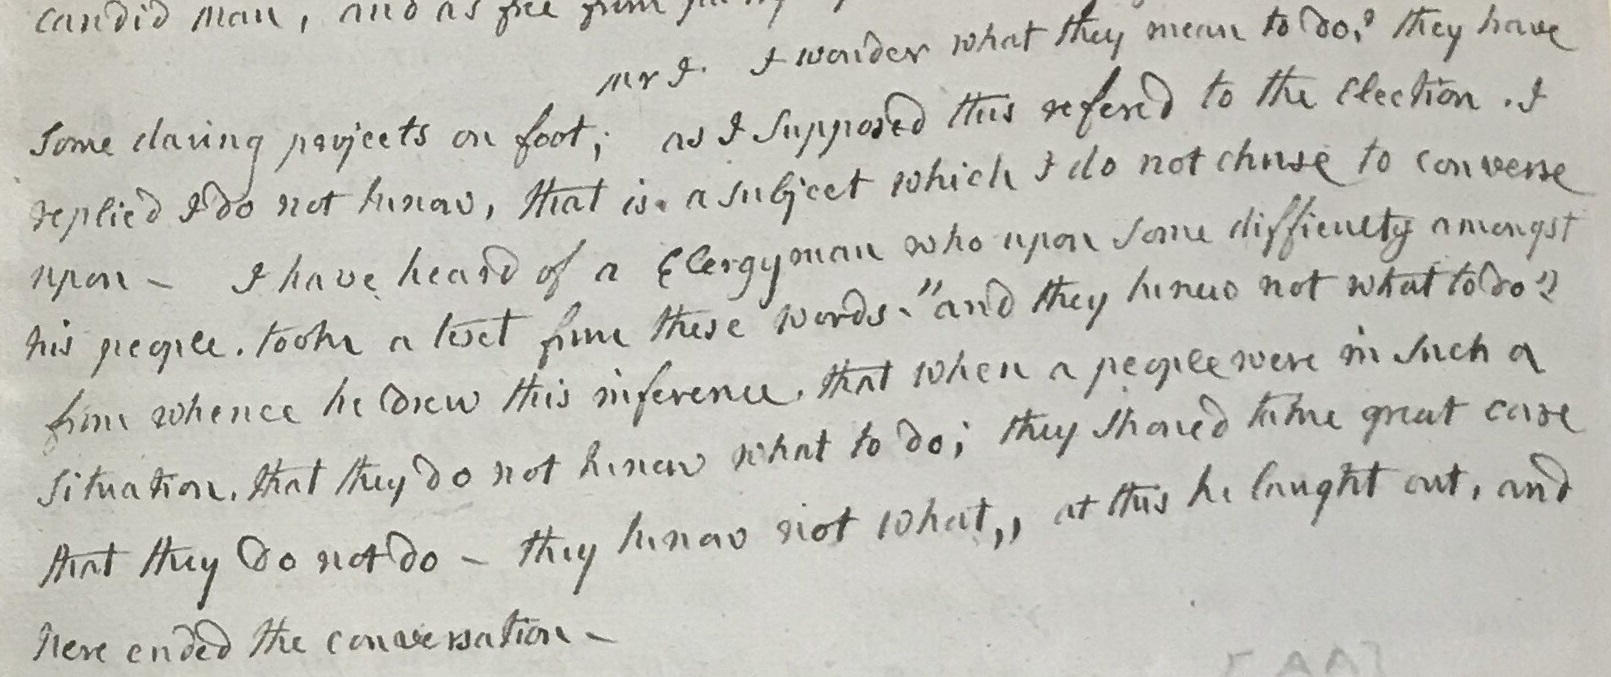 candid man, and as free from
Mr J. I wonder what they mean to do,? they have
some daring projects on foot; as I supposed this refered to the Election. I
replied I do not know, that is a subject which I do not chuse to converse
upon – I have heard of a Clergyman who upon some difficulty amongst
his people. took a text from these words. "and they knew not what to do"
from whence he drew this inference. that when a people were in such a
situation. that they do not know what to do; they should take great care
that they do not do – they know not what,, at this he laught out, and
here ended the conversation –